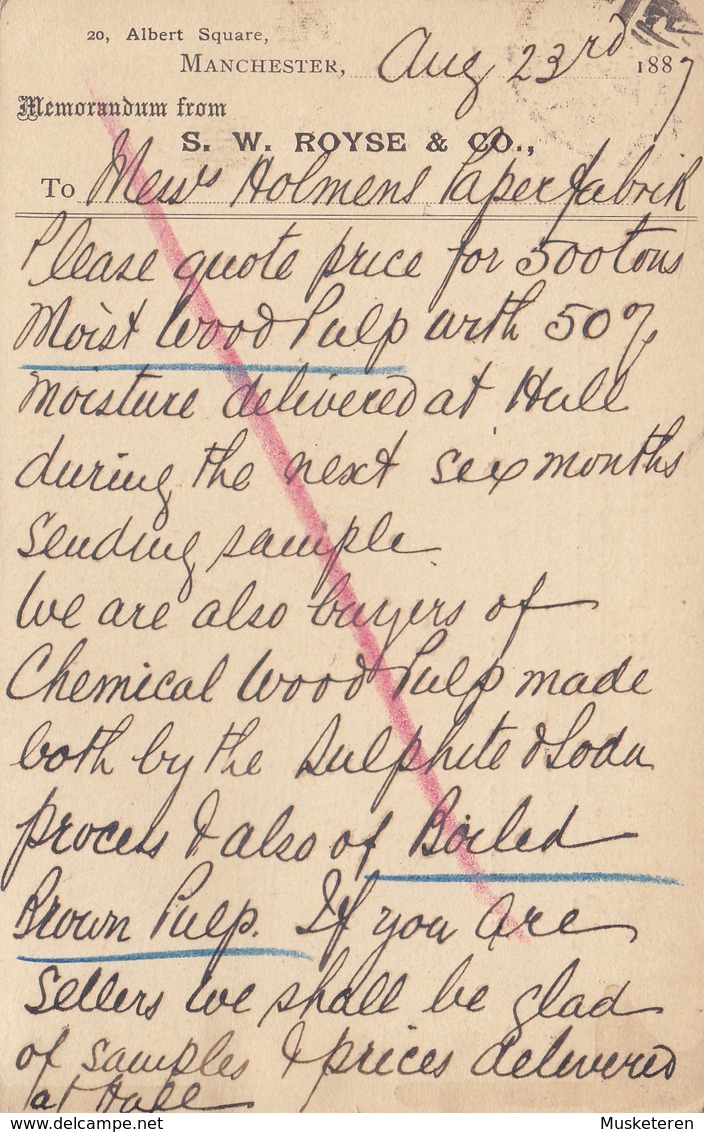 20, Albert Square,
MANCHESTER, Aug 23rd 1887
Memorandum from
S. W. ROYSE & CO.,
To Messrs Holmens Paperfabrik
Please quote price for 500 tons
Moist Wood Pulp with 50%
moisture delivered at Hull
during the next six months
Sending sample
We are also buyers of
Chemical Wood Pulp made
both by the Sulphite & Soda
process & also of Boiled
Brown Pulp. If you are
Sellers we shall be glad
of samples & prices delivered
at Hull
Musketeren